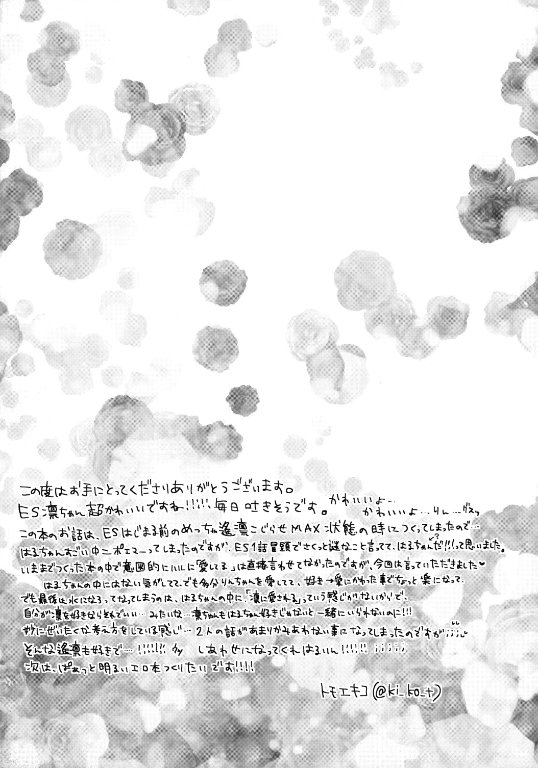 この度はお手にとってくださりありがとうございます。
ES凛ちゃん超かわいいですね〜!!!!! 毎日吐きそうです。かわいいよ…
かわいいよ…りん…
この本のお話は、ESはじまる前のめっちゃ遙凛こじらせMAX状態の時につくってしまったので…
はるちゃんすごい中二ポエマーってしまったのですが、ES1話冒頭でさくっと謎なこと言ってて、はるちゃんだ!!って思いました。
いままでつくった本の中で意図的に「凛に愛してる」は直接言わせてなかったのですが、今回は言っていただきました♥
はるちゃんの中にはない気がしてて、でも多分りんちゃんを愛してて、好き→愛にかわった事でちょっと楽になって、
でも最後は水になるってなってしまうのは、はるちゃんの中に、「凛に愛される」っていう感じがないからで、
自分が凛を好きならそれでいい…みたいな…凛ちゃんもはるちゃん好きじゃないと一緒にいられないのに!!!
妙にぜいたくな考え方をしている感じ… 2人の話があまりかみあわない事になってしまったのですが
そんな遙凛も好きで…!!!!!! しあわせになってくれはるりん!!!!!!
次は、ぱぁっと明るいエロ本つくりたいです!!!!
トモエキコ(@ki_ko_t)